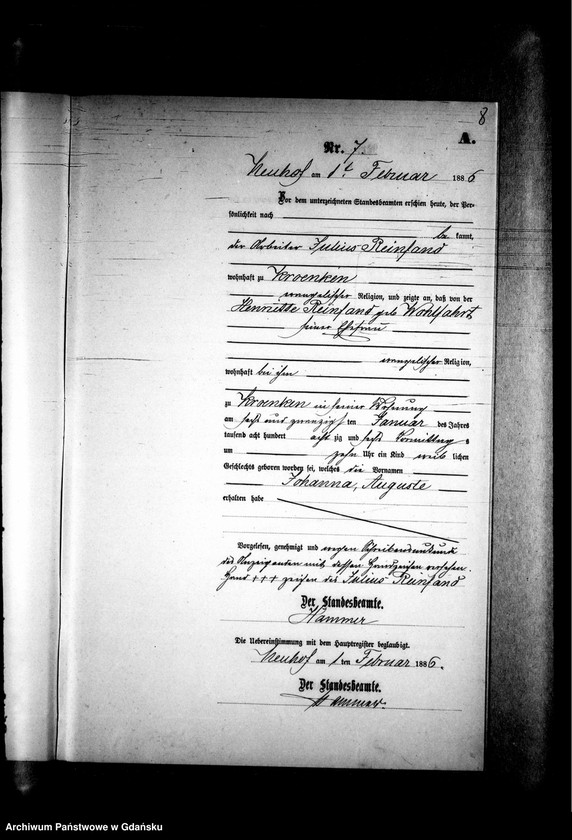 8
A.
Nr. 7.
Neuhof am 1t Februar 1886
Vor dem unterzeichneten Standesbeamten erschien heute, der Per-
sönlichkeit nach
be kannt,
der Arbeiter Julius Reinsand
wohnhaft zu Kroenken
evangelischer Religion, und zeigte an, daß von der
Henriette Reinsand geb Wohlfahrt
seiner Ehefrau
evangelischer Religion,
wohnhaft bei ihm
zu Kroenken in seiner Wohnung
am sechs und zwanzigsten Januar des Jahres
tausend acht hundert acht zig und sechs Vormittag s
um zehn Uhr ein Kind weib lichen
Geschlechts geboren worden sei, welches die Vornamen
Johanna, Auguste
erhalten habe
Vorgelesen, genehmigt und wegen Schreibensunkunde
des Anzeigenden mit dessen Handzeichen versehen.
Hand +++ zeichen des Julius Reinsand
Der Standesbeamte.
Hammer
Die Uebereinstimmung mit dem Hauptregister beglaubigt.
Neuhof am 1 ten Februar 1886.
Der Standesbeamte.
Hammer.
Archiwum Państwowe w Gdańsku